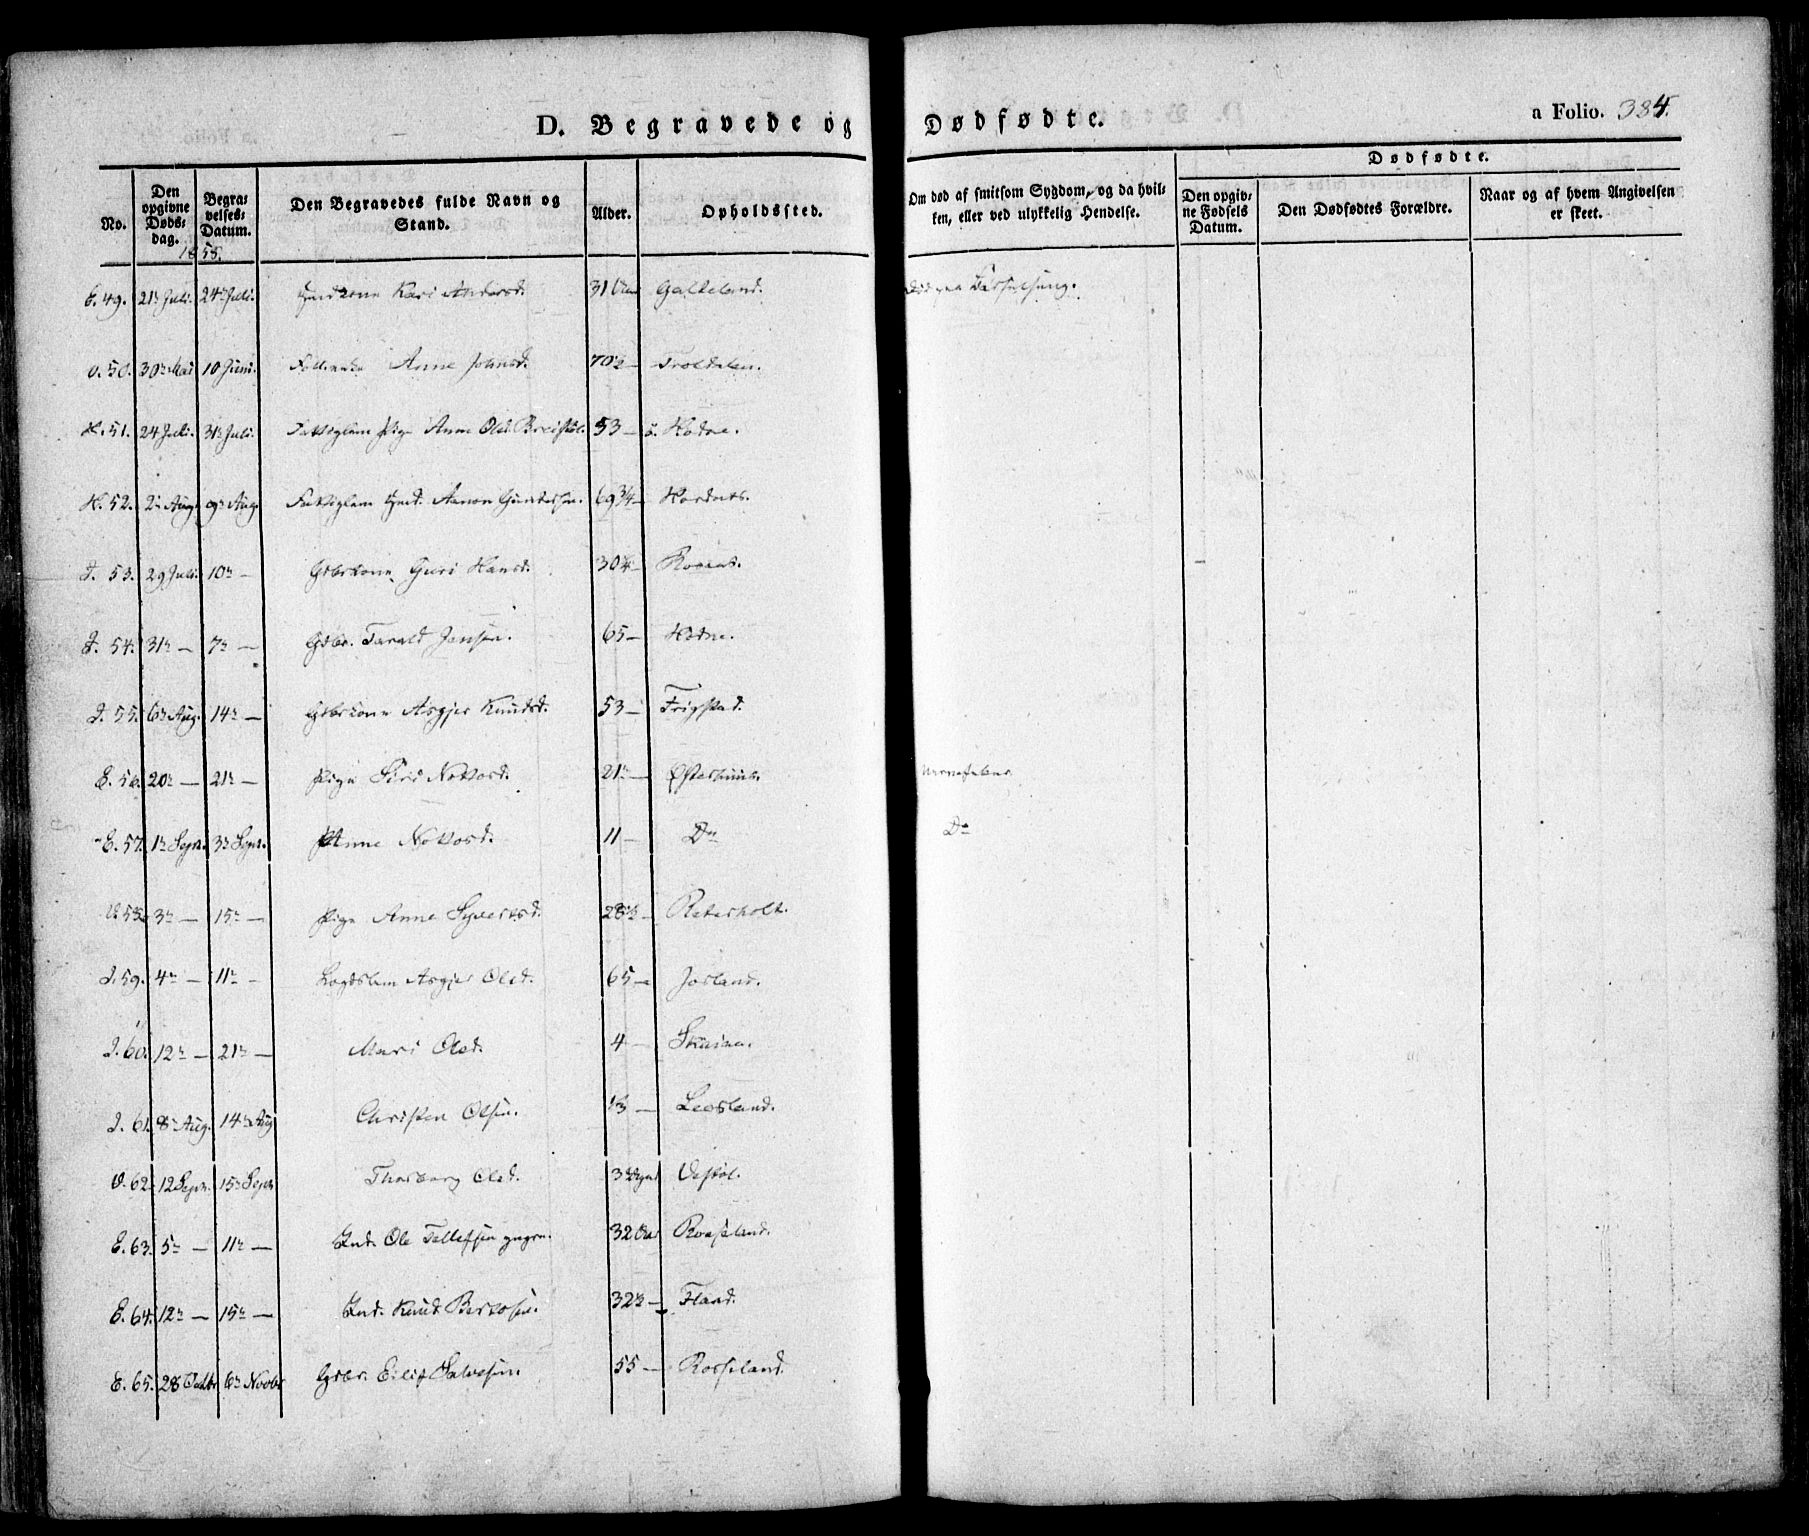 D. Begravede og Dødfødte. a Folio. 384.
No. Den opgivne Døds-dag. Begra-velses-Datum. Den Begravedes fulde Navn og Stand. Alder. Opholdssted. Om død af smitsom Sygdom, og da hvil-ken, eller ved ulykkelig Hendelse. Dødfødte.
Den opgiv-ne Fødsels Datum. Den Dødfødtes Forældre. Naar og af hvem Angivelsen er skeet.
1858.
E. 49. 21 Juli. 24 Juli. Kari Andersd. 31 Galteland. Død paa Barselseng.
50. 30 Mai 10 Juni. Anne Johnsd. 70½ Troldalen.
H. 51. 24 Juli. 31 Juli. Fattiglem Pige Anne Olsd. Breistøl. 53 — Hodne.
H. 52. 2 Aug. 9 Aug. Fattiglem Aanon Gundersen. 69¾ — Hordnes.
I. 53. 29 Juli. 10 — Gbrkone Guri Hansd. 30¼ —
I. 54. 31 — 7 — Gbr. Tarald Jensen. 65 — Hodne.
I. 55. 6 Aug. 14 — Gbrkone Asgjer Knudsd. 53 — Frigstad.
E. 56. 20 — 21 — Pige Siri Nottosd. 21 — Østerhuus. Nervefeber.
E. 57. 1 Septr. 3 Septr. Anne Nottosd. 11 — Do Do
V. 58. 3 — 15 — Pige Anne Syvertsd. 28½ — Reterholt.
I. 59. 4 — 11 — Lægdslem Asgjer Olsd. 65 — Josland.
I. 60. 12 — 21 — Mari Olsd. 4 —
I. 61. 8 Aug. 14 Aug Christen Olsen. 13 — Leosland.
V. 62. 12 Septr. 15 Septr Thorborg Olsd. 3 Vestøl.
E. 63. 5 — 11 — Ind. Ole Tellefsen yngre. 32 Rosseland.
E. 64. 12 — 15 — Ind. Knud Bertosen. 32½ — Fland.
E. 65. 28 Octbr 6 Novbr Gbr. Eilif Salvesen. 55 — Rosseland.